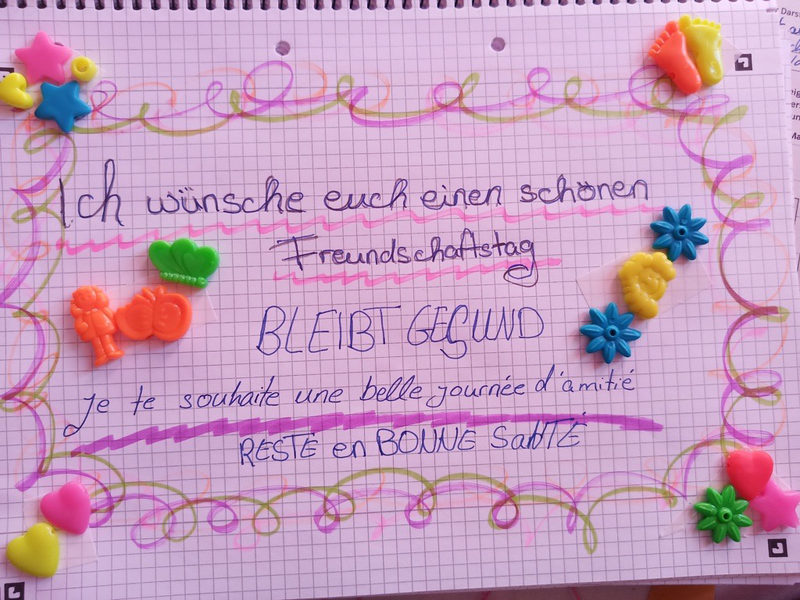 Ich wünsche euch einen schönen
Freundschaftstag
BLEIBT GESUND
Je te souhaite une belle journée d'amitié
RESTE en BONNE SaNTÉ